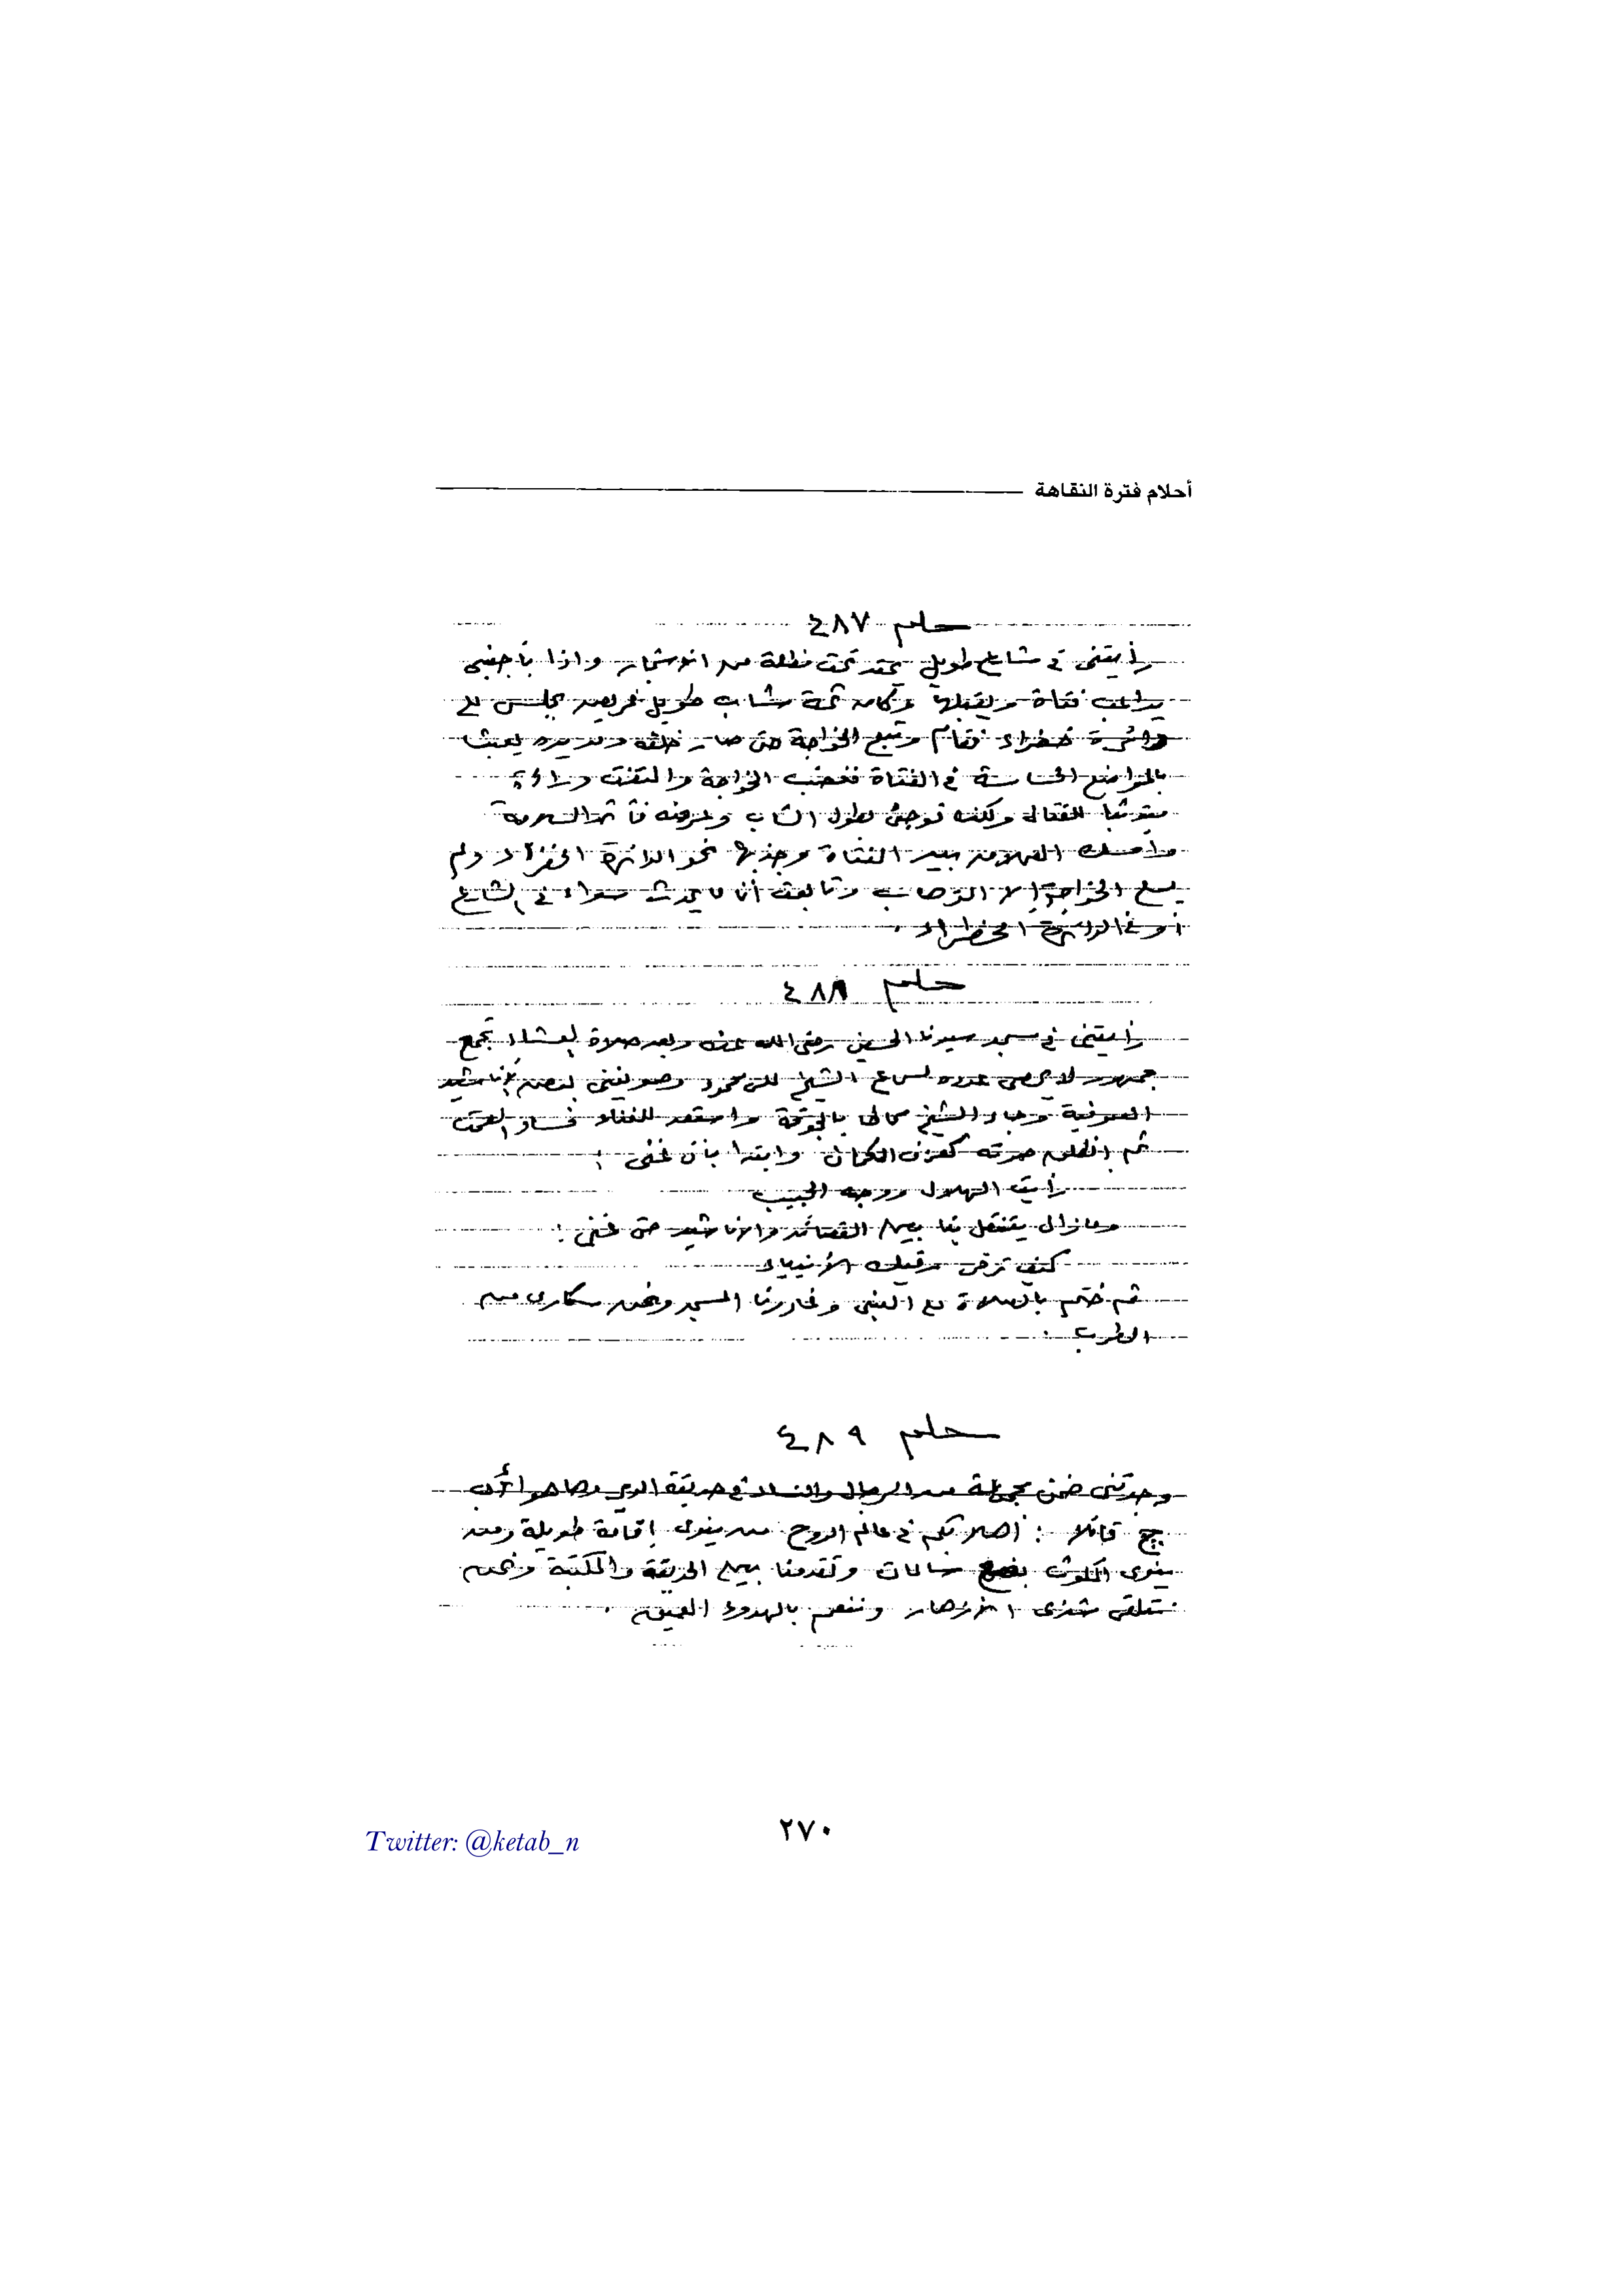 أحلام فترة النقاهة
حلم ٤٨٧
رأيتنى فى شارع طويل يمتد تحت مظلة من الأشجار وإذا بأجنبى
يداعب فتاة ويقبلها وكان ثمة شاب طويل عريض يجلس على
دائرة خضراء فقام وتبع الخواجة حتى صار خلفه ومد يده يعبث
بالمواضع الحساسة فى الفتاة فغضب الخواجة والتفت وراءه
متوثبا للقتال ولكنه فوجئ بطول الشاب وعرضه فآثر السلامة
وأمسك العملاق بيد الفتاة وجذبها نحو الدائرة الخضراء ولم
يسع الخواجة إلا الذهاب وتابعت أنا ما يحدث سواء فى الشارع
أو فى الدائرة الخضراء .
حلم ٤٨٨
رأيتنى فى مسجد سيدنا الحسين رضى الله عنه وبعد صلاة العشاء تجمع
جمهور لا يحصى عدده لسماع الشيخ على محمود وهو يغنى بعض الأناشيد
الصوفية وجاء الشيخ محاطا بالجوقة واستعد للغناء فساد الصمت
ثم انطلق صوته كعزف الكمان وابتدا بأن غنى :
رأيت الهلال ووجه الحبيب
ومازال يتنقل بنا بين القصائد والأناشيد حتى غنى :
كيف ترقى رقيك الأنبياء
ثم ختم بالصلاة على النبى وغادرنا المسجد ونحن سكارى من
الطرب .
حلم ٤٨٩
وجدتنى ضمن مجموعة من الرجال والنساء فى حديقة الدير وها هو الأب
قائلا : أهلا بكم فى عالم الروح من ينوى إقامة طويلة ومن
ينوى المكوث بضع ساعات وتقدمنا بين الحديقة والمكتبة ونحن
نتلقى شذى الأزهار وننعم بالهدوء العميق .
٢٧٠
Twitter: @ketab_n